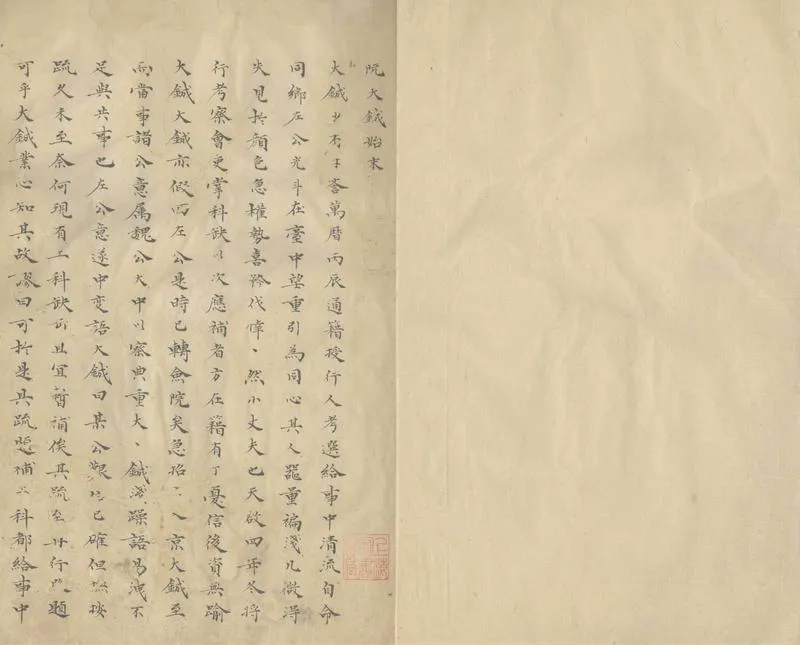 阮大鋮始末
大鋮少有才譽萬曆丙辰通籍授行人考選給事中清流自命
同鄉左公光斗在臺中望重引為同心其人器量褊淺凡微得
失見於顔色急權勢喜矜伐悻丶然小丈夫也天啟四年冬將
行考察會吏掌科缺以次應補者方在籍有丁憂信後資無踰
大鋮大鋮亦假而左公是時已轉僉院矣急招之入京大鋮至
而當事諸公意属魏公大中以察典重大丶鋮淺躁語易洩不
足與共事也左公意遂中变語大鋮曰某公艱信已確但撫按
疏久未至奈何現有工科缺於且宜暫補俟其疏至再行改題
可乎大鋮業心知其故謬曰可於是具疏題補工科都給事中